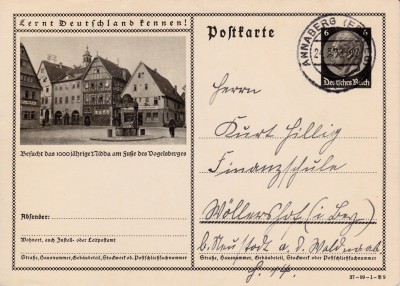 Lernt Deutschland kennen!
Besucht das 1000jährige Nidda am Fuße des Vogelsberges
Absender:
Wohnort, auch Zustell- oder Leitpostamt
Straße, Hausnummer, Gebäudeteil, Stockwerk od. Postschließfachnummer
Postkarte
ANNABERG
6 6
Deutsches Reich
Herrn
Kurt Hillig
Finanzschule
Wöllershof (i. Bay.)
b. Neustadt a. d. Waldnaab.
Straße, Hausnummer, Gebäudeteil, Stockwerk od. Postschließfachnummer
37-99-1-B9